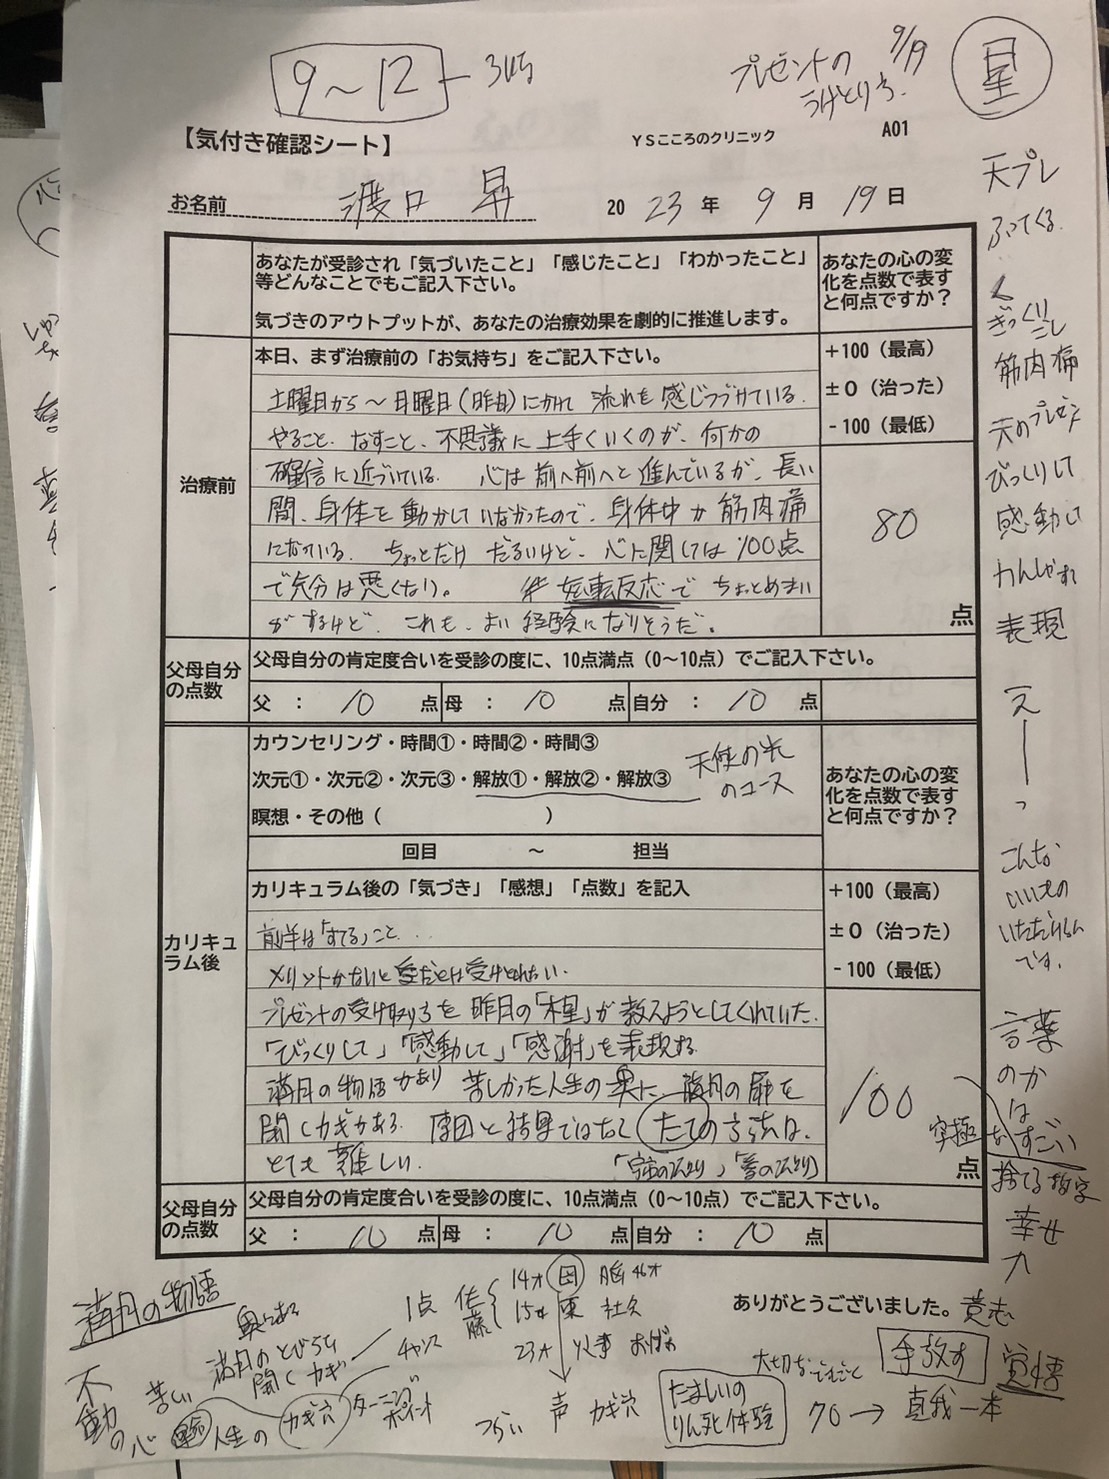 9～12
プレゼントの
うけとり方.
9/19
星
【気付き確認シート】
YSこころのクリニック
A01
お名前 渡口 昇 2023年9月19日
あなたが受診され「気づいたこと」「感じたこと」「わかったこと」
等どんなことでもご記入下さい。
気づきのアウトプットが、あなたの治療効果を劇的に推進します。
あなたの心の変
化を点数で表す
と何点ですか？
治療前
本日、まず治療前の「お気持ち」をご記入下さい。
土曜日から～月曜日(昨日)にかけて 流れを感じつづけている.
やること、なすこと、不思議に上手くいくのが、何かの
確信に近づいている. 心は前へ前へと進んでいるが、長い
間、身体を動かしていなかったので、身体中が筋肉痛
になっている. ちょっとだけ だるいけど、心に関しては100点
で気分は悪くない。 好転反応で ちょっとめまい
がするけど、これも、よい経験になりそうだ。
+100（最高）
±0（治った）
-100（最低）
80
点
父母自分
の点数
父母自分の肯定度合いを受診の度に、10点満点（0～10点）でご記入下さい。
父： 10 点 母： 10 点 自分： 10 点
カリキュ
ラム後
カウンセリング・時間①・時間②・時間③
次元①・次元②・次元③・解放①・解放②・解放③
天使の光
のコース
瞑想・その他（ ）
回目 ～ 担当
あなたの心の変
化を点数で表す
と何点ですか？
カリキュラム後の「気づき」「感想」「点数」を記入
前半は「すてる」こと...
メリットがないと 受けとれない.
プレゼントの受け取り方を 昨日の「木星」が教えようとしてくれていた.
「びっくりして」「感動して」「感謝」を表現する
満月の物語があり 苦しかった人生の奥に 満月の扉を
開くカギがある. 原因と結果ではなく たての方法は、
とても難しい.
+100（最高）
±0（治った）
-100（最低）
100
点
父母自分
の点数
父母自分の肯定度合いを受診の度に、10点満点（0～10点）でご記入下さい。
父： 10 点 母： 10 点 自分： 10 点
ありがとうございました。
天プレ
ふってくる
ぎっくりごし
筋肉痛
天のプレゼント
びっくりして
感動して
かんしゃを
表現
え
っ
こんな
いいもの
いただけるん
です.
言葉
のか
は
すごい
究極な
捨てる哲学
幸せ
力
満月の物語
奥にある
満月のとびらを
開くカギ
1点
チャンス
佐藤
14才
15才
23才
声 カギ穴
つらい
不動の心
苦しい
人生の
カギ穴
ターニング
ポイント
たましいの
りん死体験
大切な
手放す
覚悟
70→真我一本